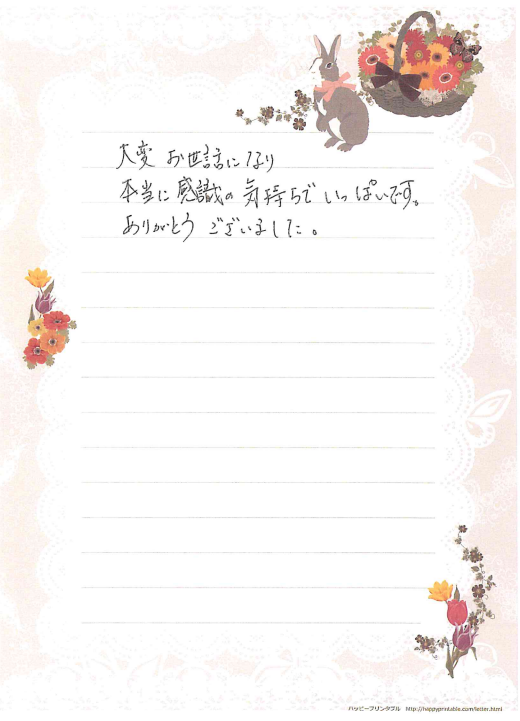 大変 お世話になり
本当に 感識の 気持ちで いっぱいです。
ありがとう ございました。
ハッピープリンタブル http://happyprintable.com/letter.html